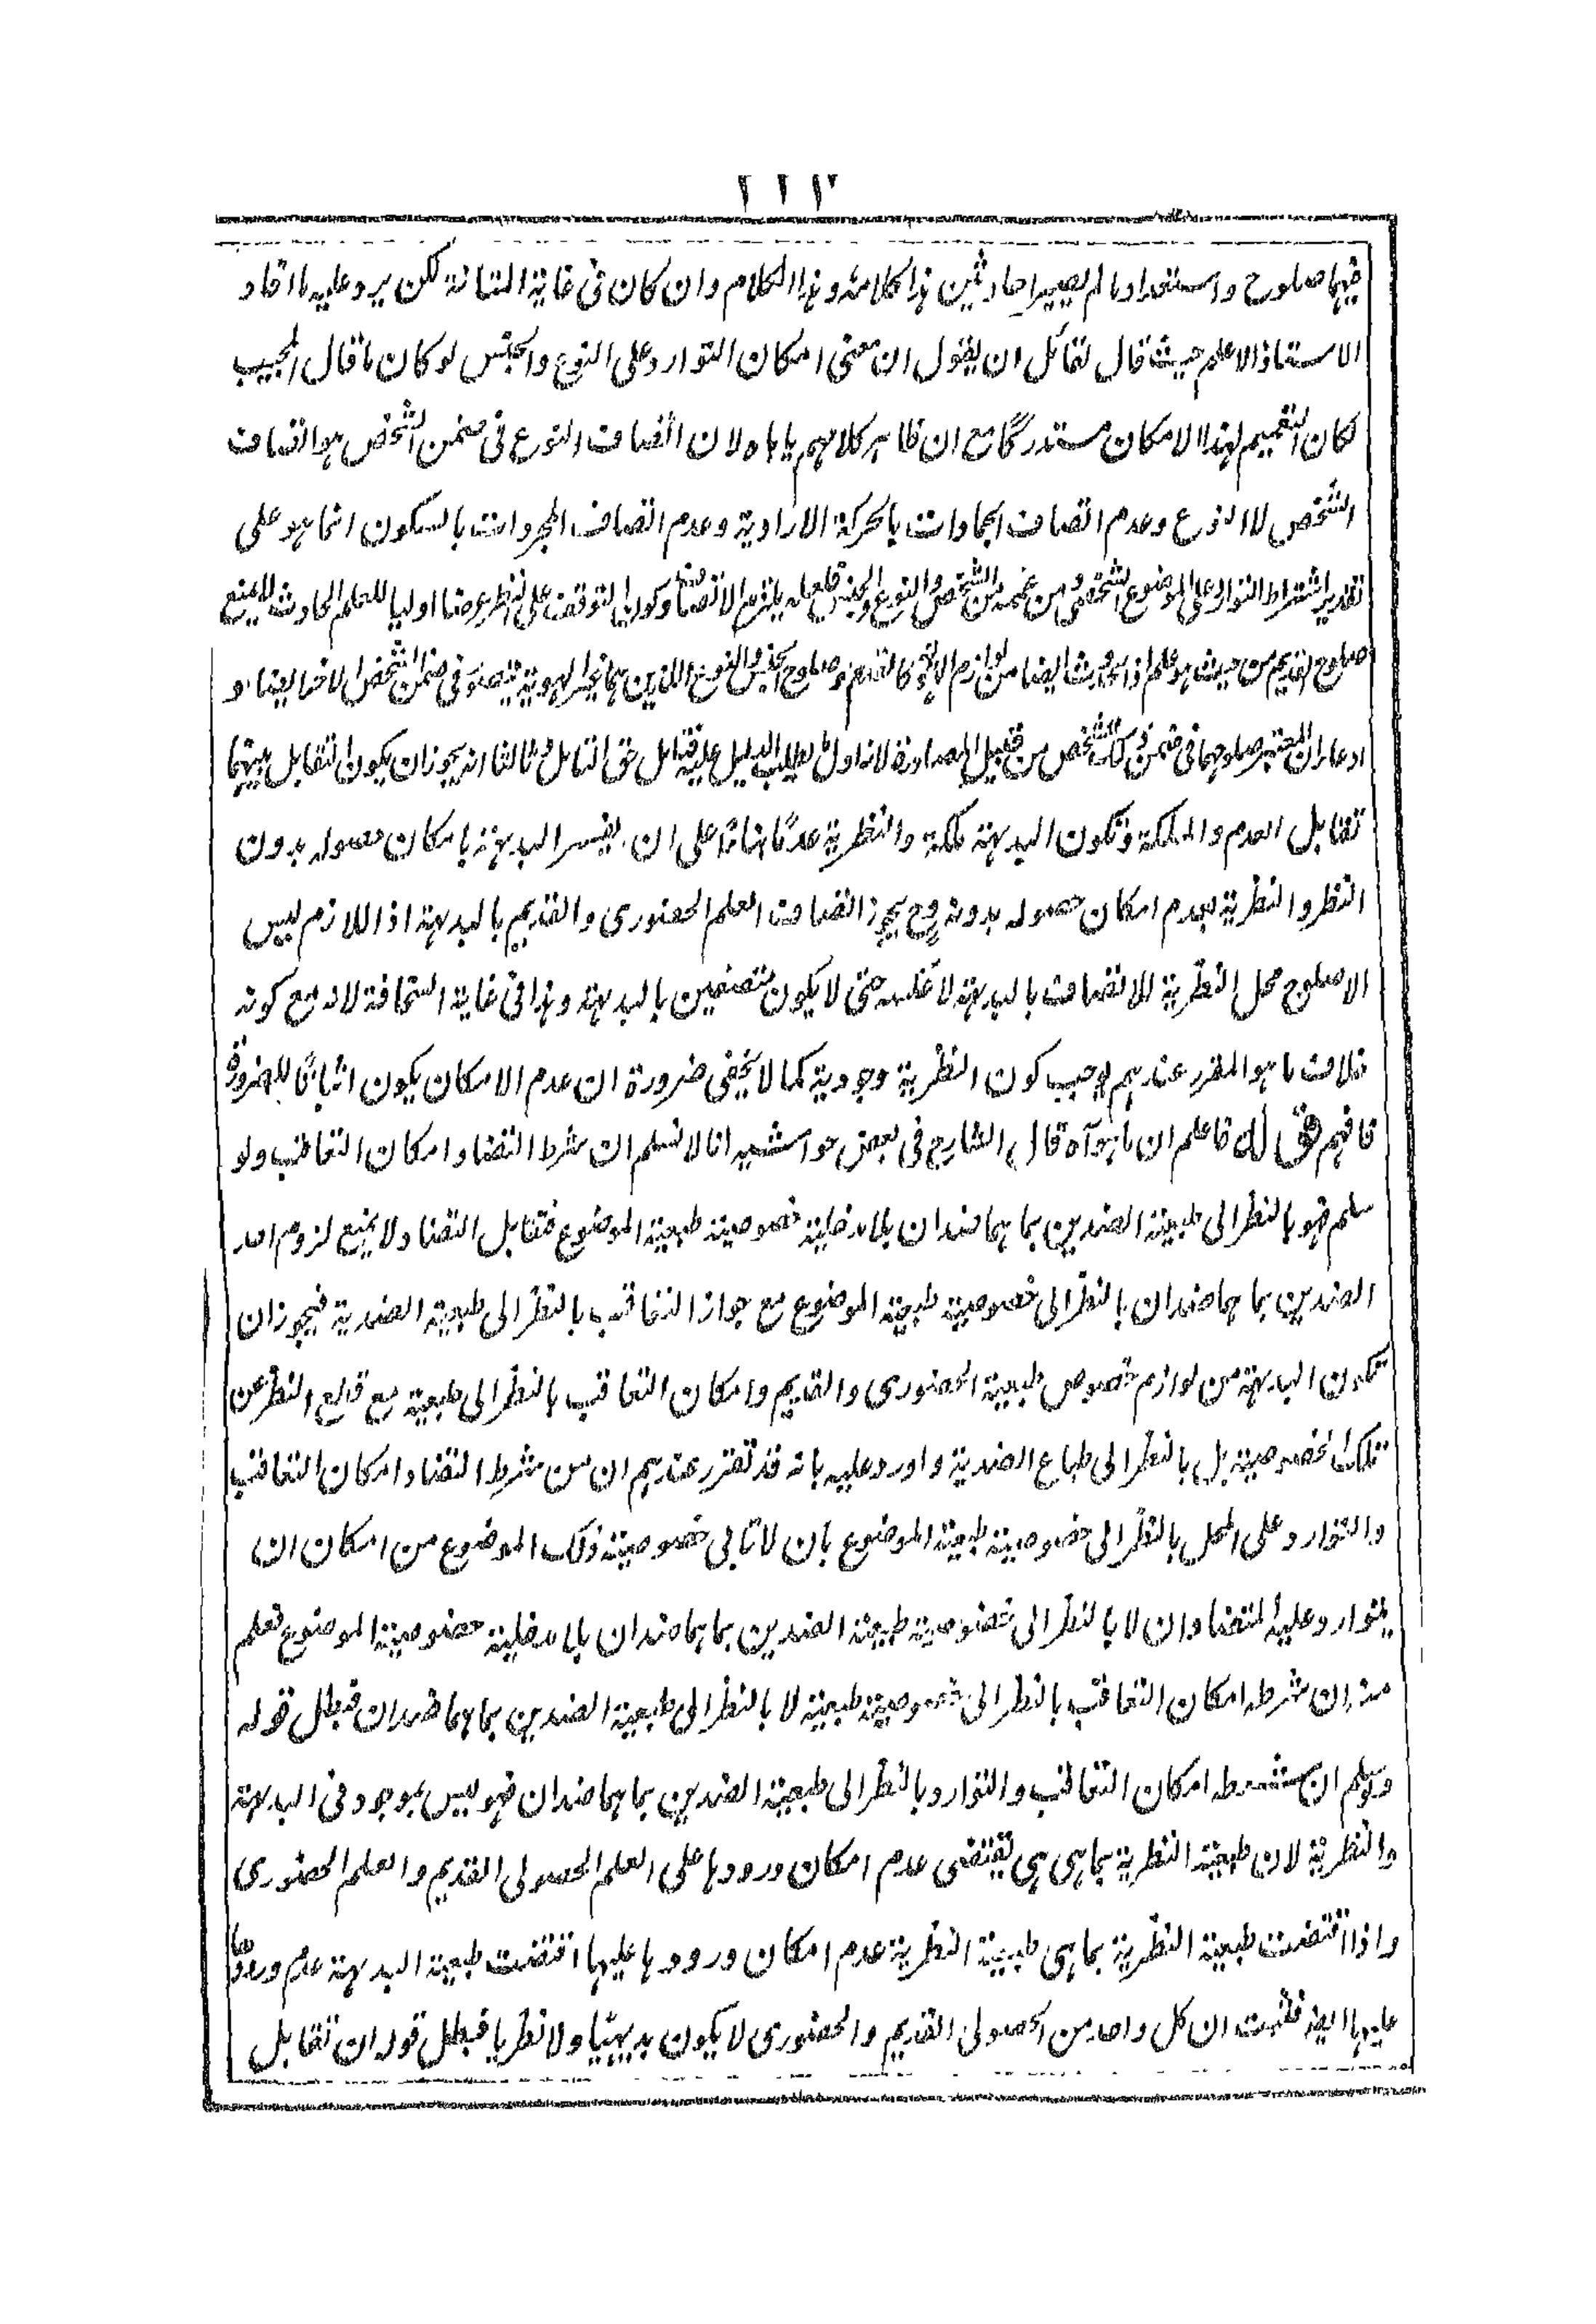 ١١٣
فيهما صلوح واستعداد ما لم يصيرا حادثين هذا كلامه وهذا الكلام وان كان فى غاية المتانة لكن يرد عليه ما افاد
الاستاذ الاعلم حيث قال لقائل ان يقول ان معنى امكان التوارد على النوع والجنس لو كان ما قال المجيب
لكان التعميم لهذا الامكان مستدركا مع ان ظاهر كلامهم ياباه لان اتصاف النوع فى ضمن الشخص هو اتصاف
الشخص لا النوع وعدم اتصاف الجمادات بالحركة الارادية وعدم اتصاف المجردات بالسكون انما هو على
تقدير اشتراط التوارد على الموضوع الشخصى ومن عممه من الشخص والنوع والجنس فلعله يلتزم الاتصاف وكون التوقف على النظر عرضا اوليا للعلم الحادث لا يمنع
صلوح القديم من حيث هو علم اذ الحدوث ايضا من لوازم الهوية كالقدم وصلوح الجنس والنوع اللذين هما غير الهوية يتصور فى ضمن الشخص الاخر ايضا و
ادعاء ان المعتبر صلوحهما فى ضمن ذلك الشخص من قبيل المصادرة لانه اول ما يطلب الدليل عليه فتامل حق التامل وثالثا انه يجوز ان يكون التقابل بينهما
تقابل العدم والملكة وتكون البديهة ملكة والنظرية عدما بناءً على ان يفسر البديهة بامكان حصوله بدون
النظر والنظرية بعدم امكان حصوله بدونه وح يجوز اتصاف العلم الحضورى والقديم بالبديهة اذ اللازم ليس
الا صلوح محل النظرية للاتصاف بالبديهة لا عكسه حتى لا يكون متصفين بالبديهة وهذا فى غاية السخافة لانه مع كونه
خلاف ما هو المقرر عندهم يوجب كون النظرية وجودية كما لا يخفى ضرورة ان عدم الامكان يكون اثباتا للضرورة
فافهم قوله فاعلم ان ما هو آه قال الشارح فى بعض حواشيه انا لا نسلم ان شرط التضاد امكان التعاقب ولو
سلم فهو بالنظر الى طبيعة الضدين بما هما ضدان بلا مدخلية خصوصية طبيعة الموضوع فتقابل التضاد لا يمنع لزوم احد
الضدين بما هما ضدان بالنظر الى خصوصية طبيعة الموضوع مع جواز التعاقب بالنظر الى طبيعة الضدية فيجوز ان
تكون البديهة من لوازم خصوص طبيعة الحضورى والقديم وامكان التعاقب بالنظر الى طبيعة مع قطع النظر عن
تلك الخصوصية بل بالنظر الى طباع الضدية واورد عليه بانه قد تقرر عندهم ان من شرط التضاد امكان التعاقب
والتوارد على المحل بالنظر الى خصوصية طبيعة الموضوع بان لا تابى خصوصية ذلك الموضوع من امكان ان
يتوارد عليه المتضادان لا بالنظر الى خصوصية طبيعة الضدين بما هما ضدان بلا مدخلية خصوصية الموضوع فعلم
منه ان شرطه امكان التعاقب بالنظر الى خصوصية طبيعة لا بالنظر الى طبيعة الضدين بما هما ضدان فبطل قوله
ولو سلم ان شرطه امكان التعاقب والتوارد بالنظر الى طبيعة الضدين بما هما ضدان فهو ليس بموجود فى البديهة
والنظرية لان طبيعة النظرية بما هى هى تقتضى عدم امكان ورودها على العلم الحصولى القديم والعلم الحضورى
واذا اقتضت طبيعة النظرية بما هى طبيعة النظرية عدم امكان ورودها عليها اقتضت طبيعة البديهة عدم ورودها
عليها ايضا فثبت ان كل واحد من الحصولى القديم والحضورى لا يكون بديهيا ولا نظريا فبطل قوله ان تقابل